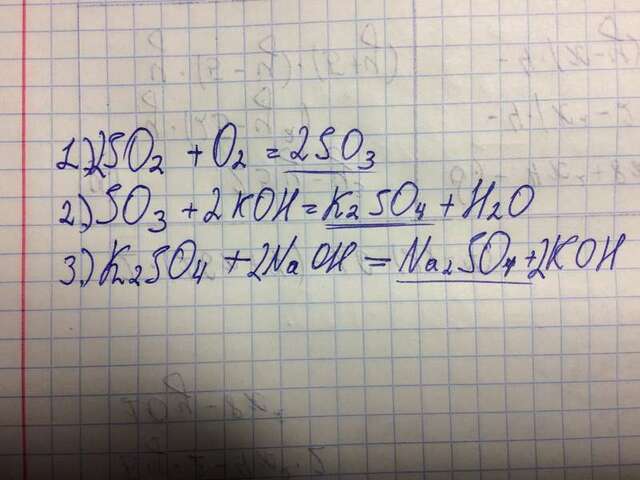 1) 2SO2 + O2 = 2SO3
2) SO3 + 2KOH = K2SO4 + H2O
3) K2SO4 + 2NaOH = Na2SO4 + 2KOH